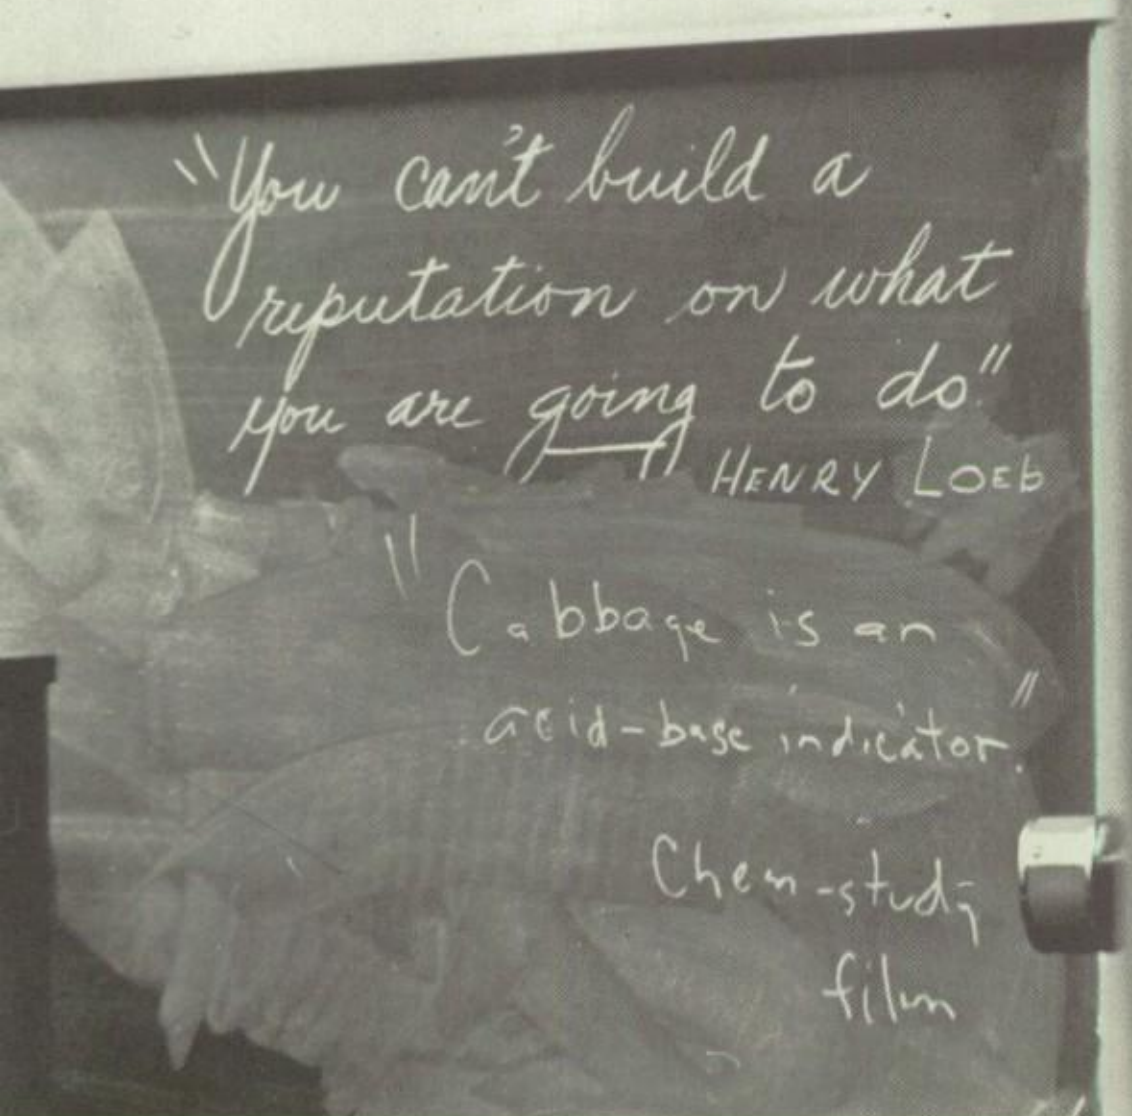 "You can't build a
reputation on what
you are going to do."
HENRY LOEb
"Cabbage is an
acid-base indicator."
Chem-study
film